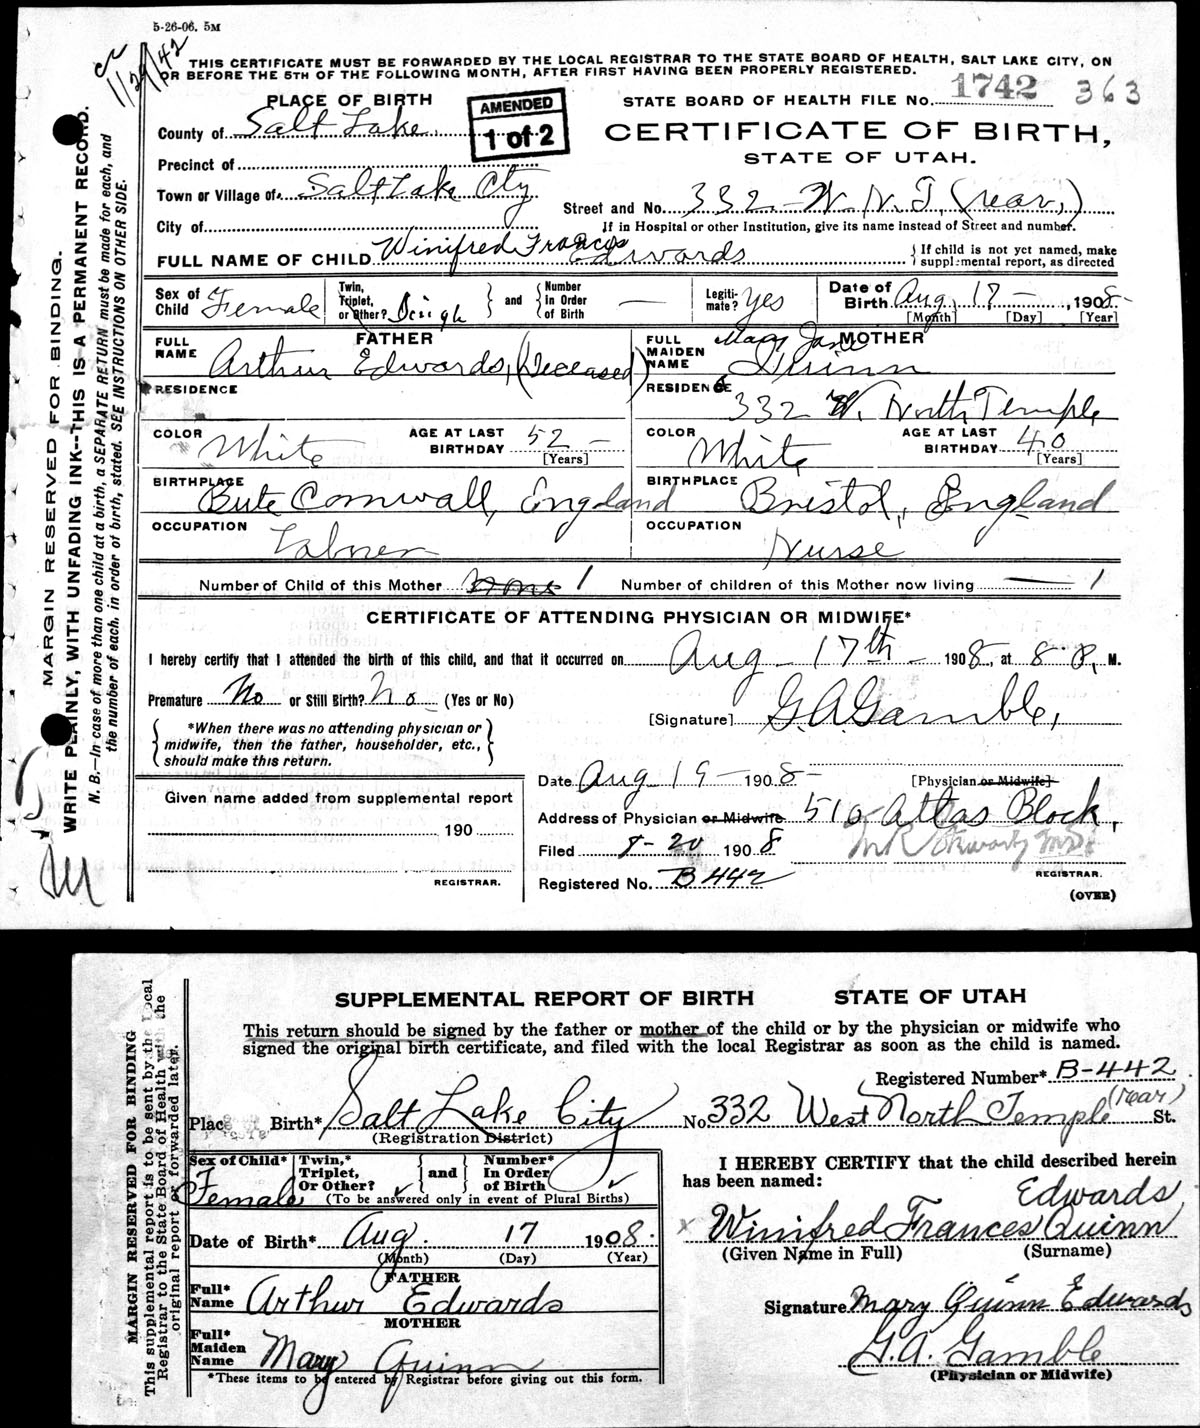 5-26-06. 5M
1/29/42
THIS CERTIFICATE MUST BE FORWARDED BY THE LOCAL REGISTRAR TO THE STATE BOARD OF HEALTH, SALT LAKE CITY, ON
OR BEFORE THE 5TH OF THE FOLLOWING MONTH, AFTER FIRST HAVING BEEN PROPERLY REGISTERED.
MARGIN RESERVED FOR BINDING.
WRITE PLAINLY, WITH UNFADING INK--THIS IS A PERMANENT RECORD.
N. B.—In case of more than one child at a birth, a SEPARATE RETURN must be made for each, and
the number of each, in order of birth, stated. SEE INSTRUCTIONS ON OTHER SIDE.
PLACE OF BIRTH
AMENDED
1 of 2
STATE BOARD OF HEALTH FILE No. 1742 363
County of Salt Lake
CERTIFICATE OF BIRTH,
STATE OF UTAH.
Precinct of
Town or Village of Salt Lake City
Street and No. 332 - W. N. T. (rear,)
City of
If in Hospital or other Institution, give its name instead of Street and number.
FULL NAME OF CHILD Winifred Frances Edwards
If child is not yet named, make
supplemental report, as directed
Sex of Child Female
Twin, Triplet, or Other?
and
Number In Order of Birth —
Legiti-mate? Yes
Date of Birth Aug 17 — , 1908
[Month] [Day] [Year]
FATHER
FULL NAME Arthur Edwards, (Deceased)
MOTHER
FULL MAIDEN NAME Mary Jane Quinn
RESIDENCE
RESIDENCE 332 W. North Temple
COLOR White
AGE AT LAST BIRTHDAY 52 —
[Years]
COLOR White
AGE AT LAST BIRTHDAY 40
[Years]
BIRTHPLACE Bute Cornwall, England
BIRTHPLACE Bristol, England
OCCUPATION Laborer
OCCUPATION Nurse
Number of Child of this Mother None 1
Number of children of this Mother now living — 1
CERTIFICATE OF ATTENDING PHYSICIAN OR MIDWIFE*
I hereby certify that I attended the birth of this child, and that it occurred on Aug - 17th - 1908, at 8 P. M.
Premature No or Still Birth? No (Yes or No)
[Signature] G. A. Gamble,
*When there was no attending physician or
midwife, then the father, householder, etc.,
should make this return.
Date Aug 19 — 1908
[Physician or Midwife]
Given name added from supplemental report
190
REGISTRAR.
Address of Physician or Midwife 510 Atlas Block,
Filed 8-20 1908
REGISTRAR.
Registered No. B 442
(OVER)
MARGIN RESERVED FOR BINDING
This supplemental report is to be sent by the Local
Registrar to the State Board of Health with the
original report or forwarded later.
SUPPLEMENTAL REPORT OF BIRTH STATE OF UTAH
This return should be signed by the father or mother of the child or by the physician or midwife who
signed the original birth certificate, and filed with the local Registrar as soon as the child is named.
Registered Number* B-442
Place Birth* Salt Lake City
No. 332 West North Temple (rear) St.
(Registration District)
Sex of Child* Female
Twin,* Triplet, Or Other?
and
Number* In Order of Birth
(To be answered only in event of Plural Births)
I HEREBY CERTIFY that the child described herein
has been named:
Edwards
Winifred Frances Quinn
(Given Name in Full) (Surname)
Date of Birth* Aug. 17 1908.
(Month) (Day) (Year)
FATHER
Full* Name Arthur Edwards
Signature Mary Quinn Edwards
MOTHER
Full* Maiden Name Mary Quinn
G. A. Gamble
(Physician or Midwife)
*These items to be entered by Registrar before giving out this form.